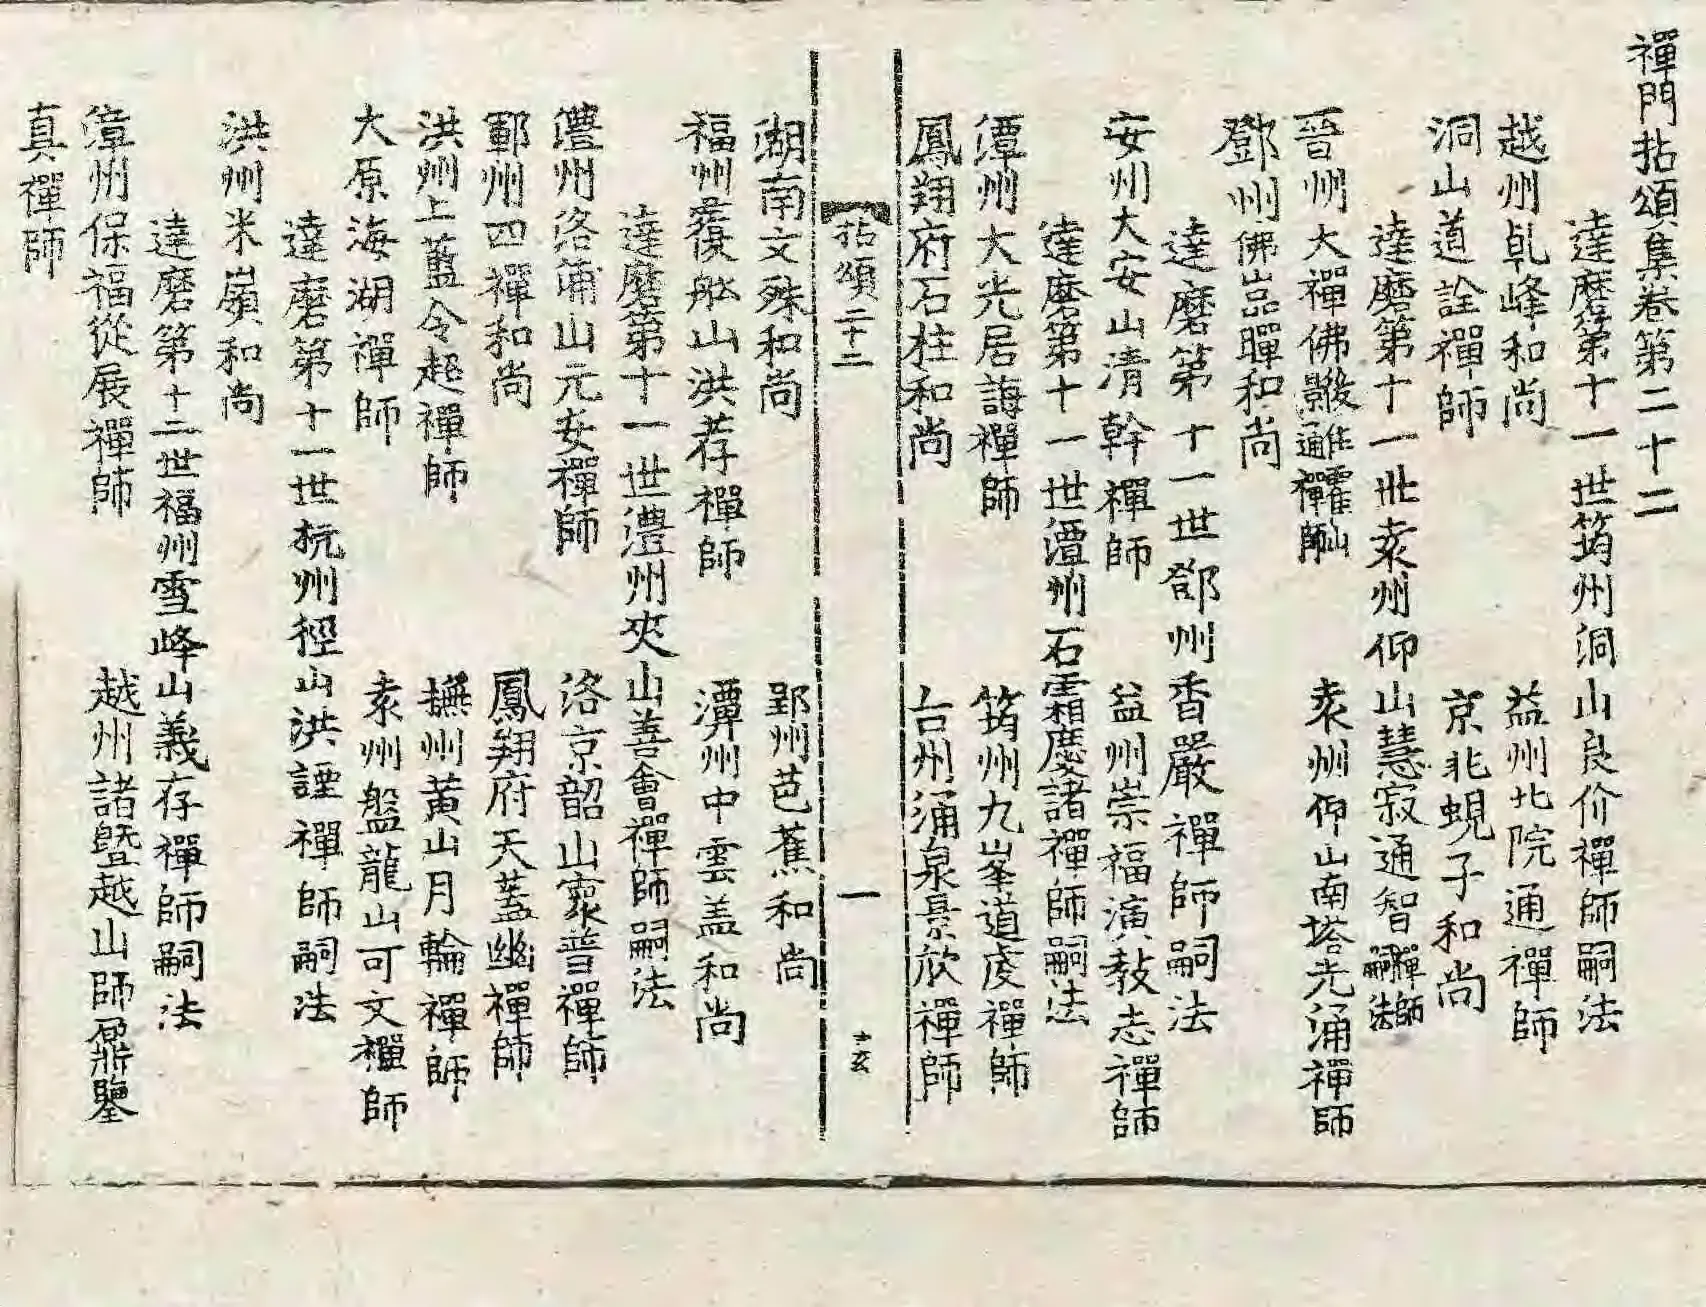 禪門拈頌集卷第二十二
達磨第十一世筠州洞山良价禪師嗣法
越州乹峰和尚 益州北院通禪師
洞山道詮禪師 京兆蜆子和尚
達磨第十一世袁州仰山慧寂通智禪師嗣法
晉州大禪佛景通禪師 袁州仰山南塔光涌禪師
鄧州佛嵓暉和尚
達磨第十一世鄧州香嚴禪師嗣法
安州大安山清幹禪師 益州崇福演教志禪師
達磨第十一世潭州石霜慶諸禪師嗣法
潭州大光居誨禪師 筠州九峯道虔禪師
鳳翔府石柱和尚 台州涌泉景欣禪師
拈頌二十二 一
湖南文殊和尚 郢州芭蕉和尚
福州覆舩山洪荐禪師 潭州中雲盖和尚
達磨第十一世澧州夾山善會禪師嗣法
澧州洛浦山元安禪師 洛京韶山寰普禪師
鄆州四禪和尚 鳳翔府天蓋幽禪師
洪州上藍令超禪師 撫州黄山月輪禪師
大原海湖禪師 袁州盤龍山可文禪師
達磨第十一世杭州徑山洪諲禪師嗣法
洪州米嶺和尚
達磨第十二世福州雪峰山義存禪師嗣法
漳州保福從展禪師 越州諸曁越山師鼐鑒
真禪師